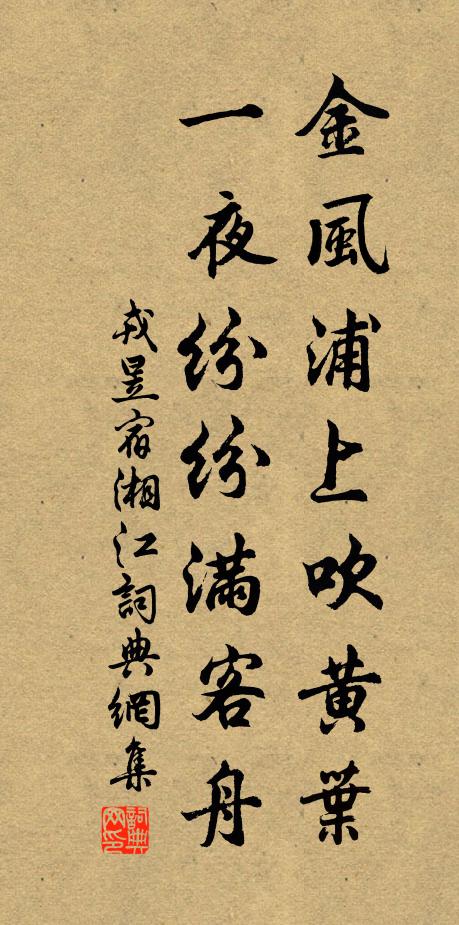 金風浦上吹黄葉
一夜紛紛滿客舟
戎昱宿湘江詞典網集
詞典
网印